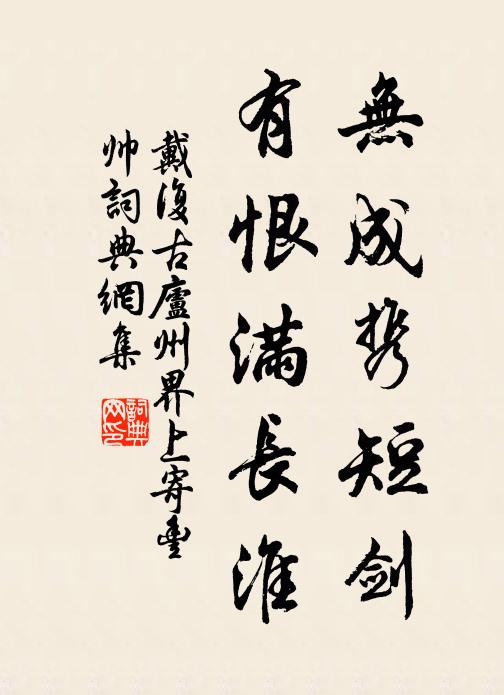 無成携短劍
有恨滿長淮
戴復古廬州界上寄豐
帅詞典網集
詞典網印